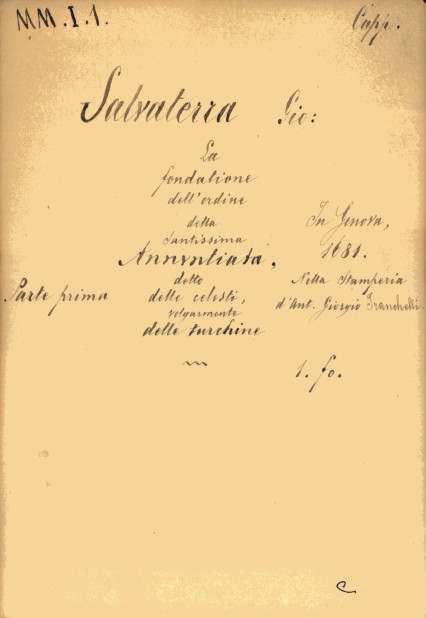 MM. I. 1.
Capp.
Salvaterra Gio:
La
fondatione
dell'ordine
della
Santissima
Annvntiata,
detto
delle celesti,
volgarmente
delle turchine
Parte prima
In Genova,
1681.
Nella Stamperia
d'Ant. Giorgio Franchelli.
1. fo.
C